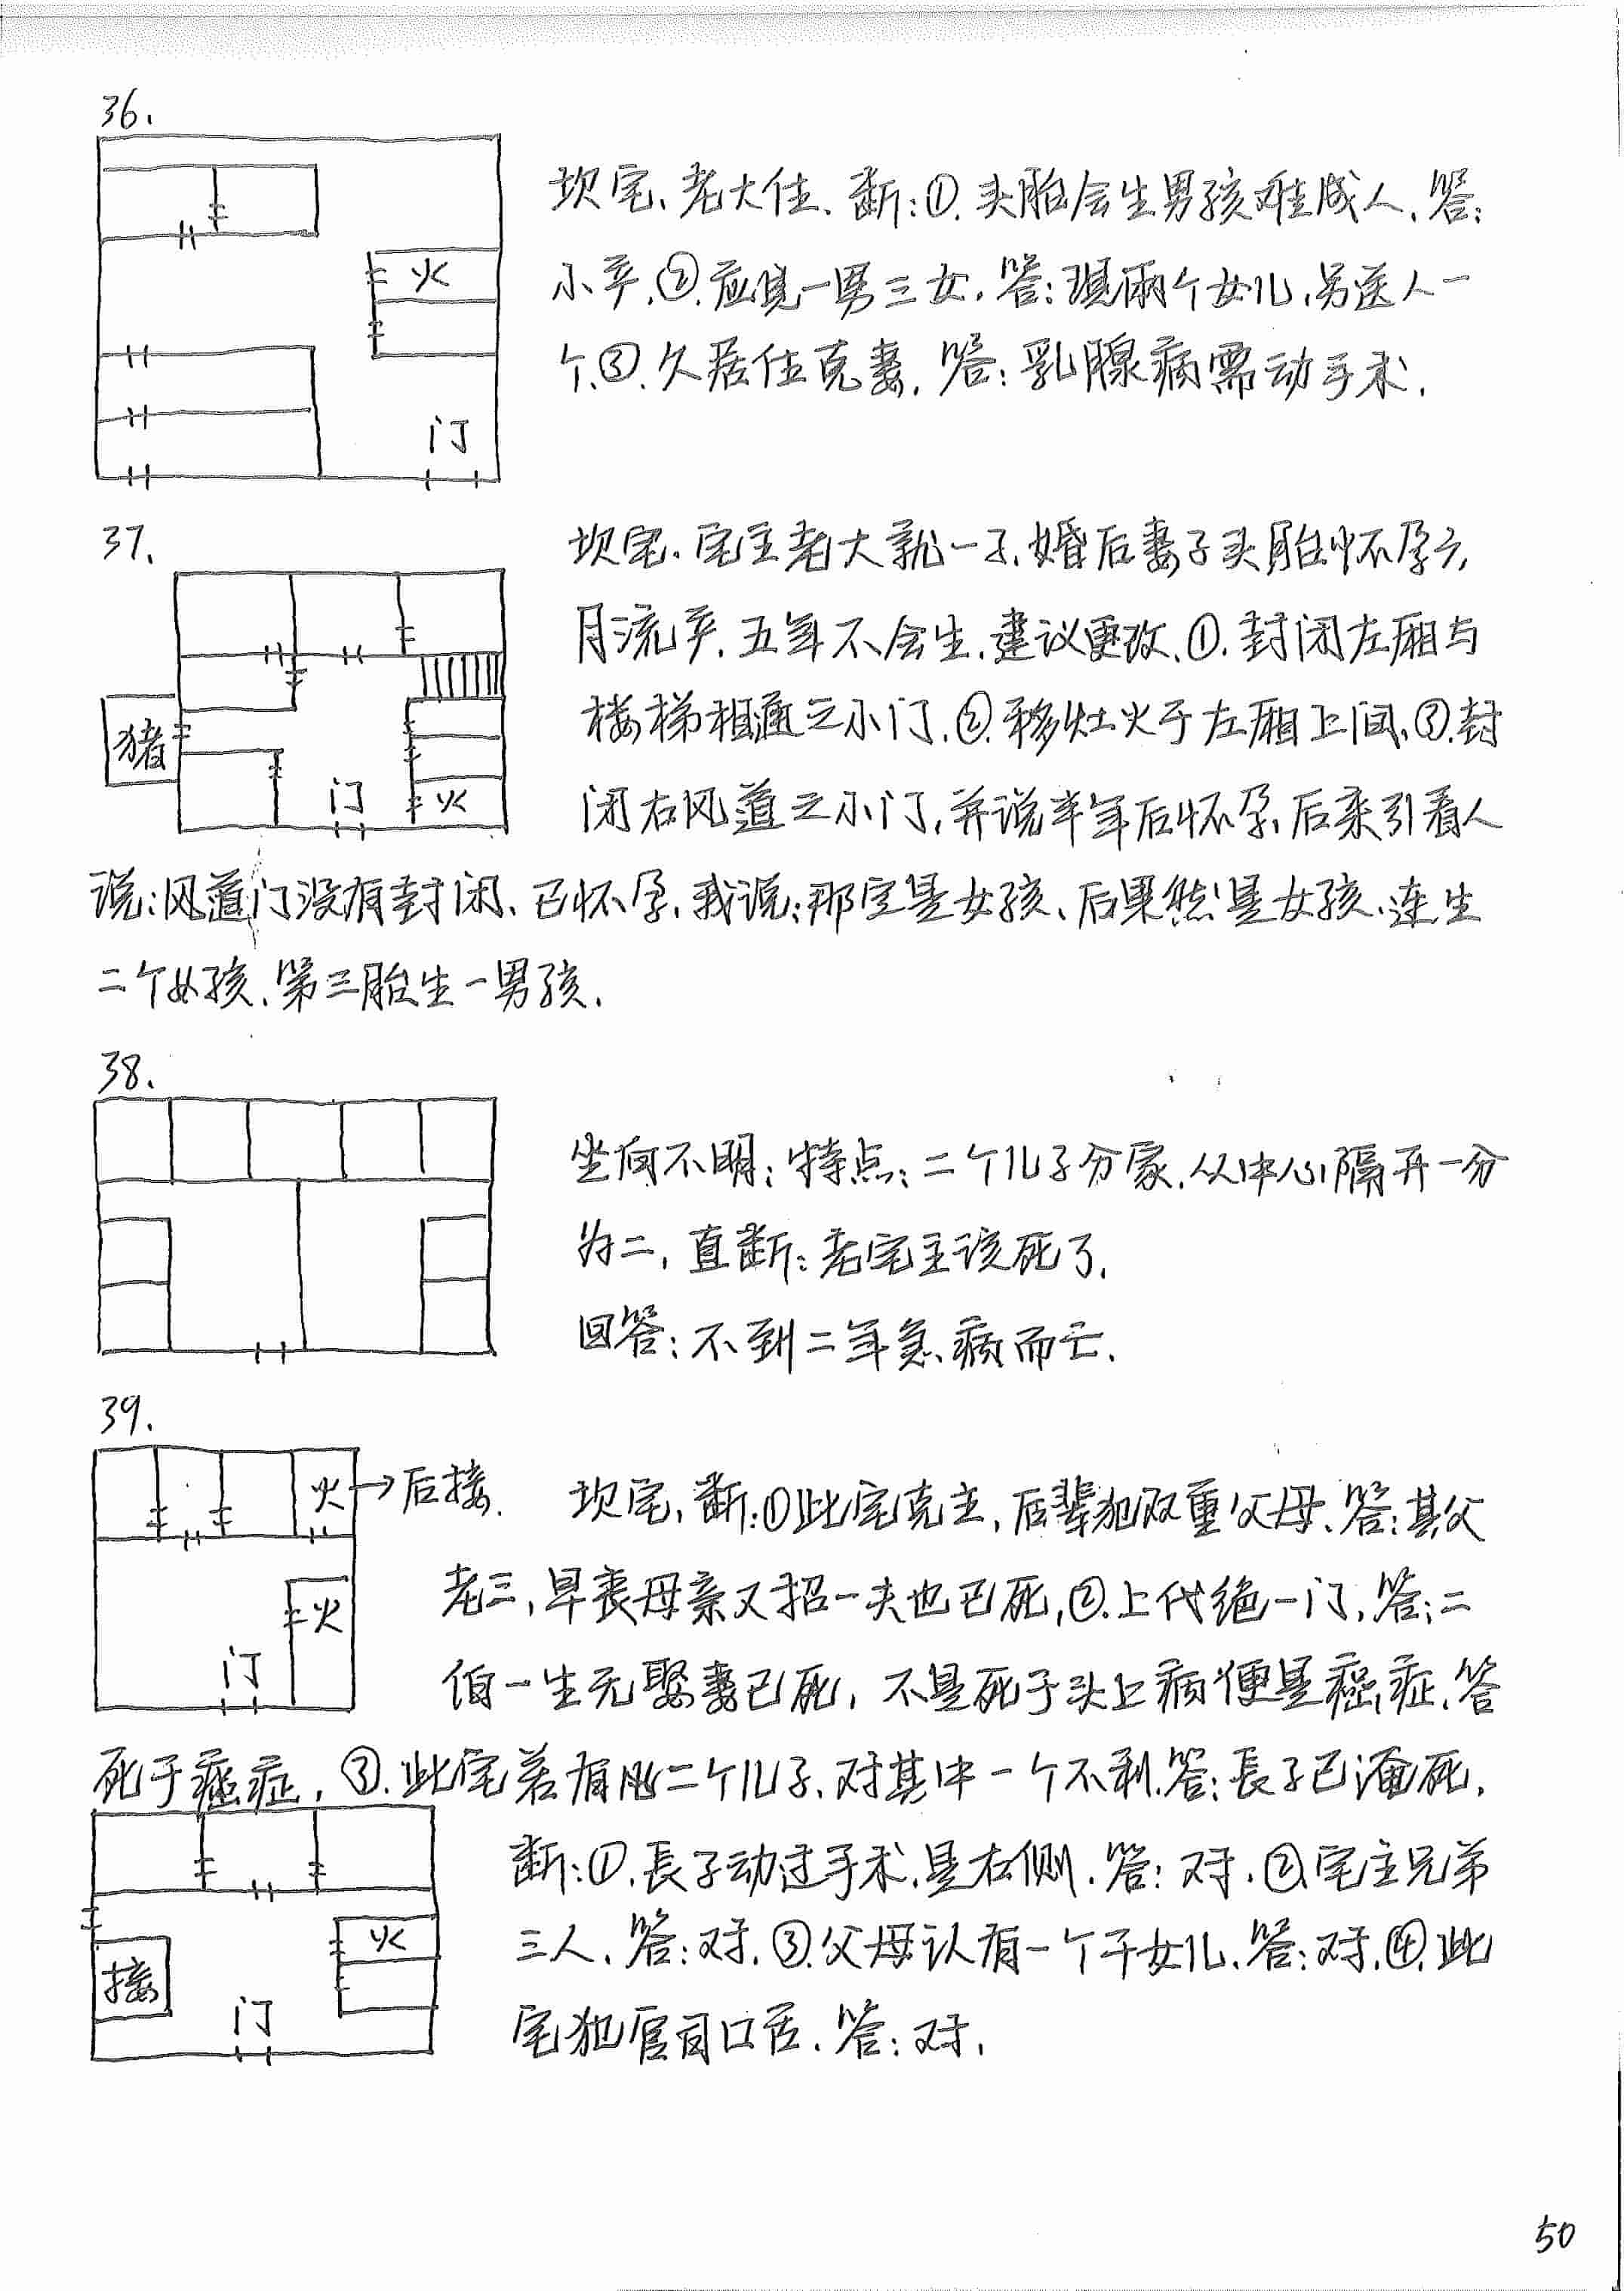 36.
坎宅、老大住、断:①.头胎会生男孩难成人、答:
火
小产.②.应见一男三女.答:现两个女儿,另送人一
个.③.久居住克妻.答:乳腺病需动手术.
门
37.
坎宅.宅主老大就一子.婚后妻子头胎怀孕六
月流产.五年不会生.建议更改.①.封闭左厢与
猪
楼梯相通之小门.②.移灶火于左厢上间.③.封
门 火
闭右风道之小门,并说半年后怀孕,后来引着人
说:风道门没有封闭、已怀孕,我说:那定是女孩、后果然是女孩.连生
二个女孩.第三胎生一男孩.
38.
坐向不明:特点:二个儿子分家.从中心隔开一分
为二,直断:老宅主该死了.
回答:不到二年急病而亡.
39.
火→后接.
坎宅,断:①此宅克主,后辈犯双重父母、答:其父
火
老三,早丧母亲又招一夫也已死,②.上代绝一门,答:二
门
伯一生无娶妻已死,不是死于头上病便是癌症.答
死于癌症,③.此宅若有二个儿子.对其中一个不利.答:長子已淹死.
断:①.長子动过手术.是右侧.答:对.②.宅主兄弟
火
三人.答:对.③.父母认有一个干女儿.答:对.④.此
接
门
宅犯官司口舌.答:对.
50